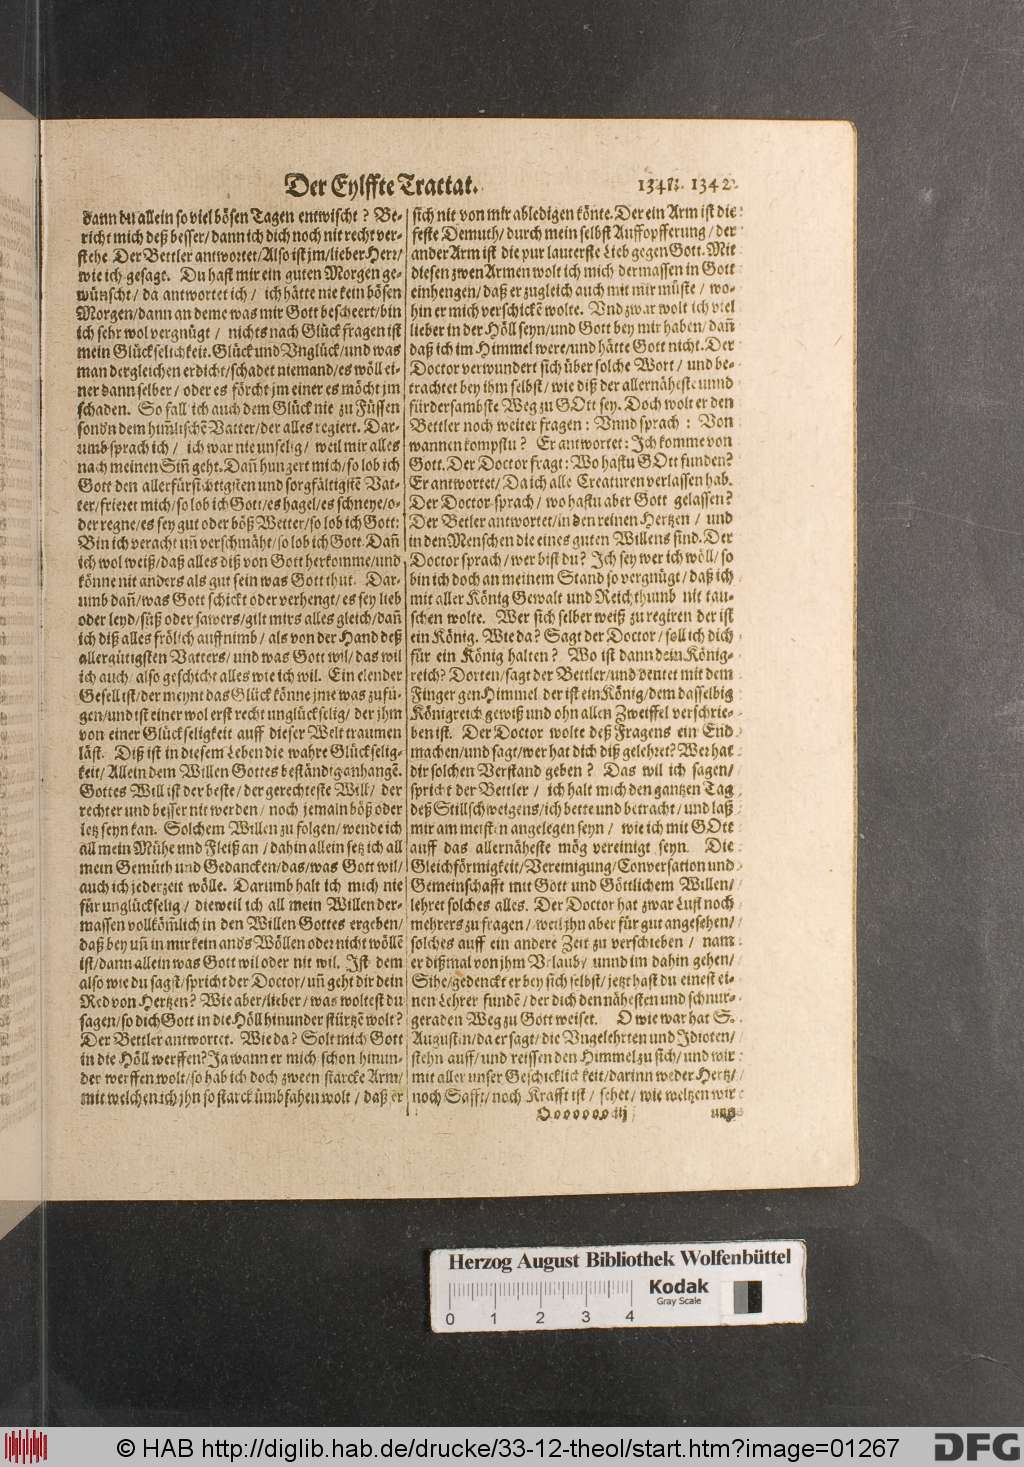 Der Eylffte Tractat.
1341. 1342.
dann du allein so viel bösen Tagen entwischt? Be-
richt mich deß besser/ dann ich dich noch nit recht ver-
stehe Der Bettler antwortet/ Also ist jm/ lieber Herr/
wie ich gesagt. Du hast mir ein guten Morgen ge-
wünscht/ da antwortet ich/ ich hätte nie kein bösen
Morgen/ dann an deme was mir Gott beschert/ bin
ich sehr wol vergnügt/ nichts nach Glück fragen ist
mein Glückselichkeit. Glück und Vnglück/ und was
man dergleichen erdicht/ schadet niemand/ es wöll ei-
ner dann selber/ oder es förcht jm einer es möcht jm
schaden. So fall ich auch dem Glück nie zu Füssen
sondn dem him̃lischẽ Vatter/ der alles regiert. Dar-
umb sprach ich/ ich war nie unselig/ weil mir alles
nach meinen Sin̄ geht. Dan̄ hungert mich/ so lob ich
Gott den allerfürsichtigsten und sorgfältigstẽ Vat-
ter/ frieret mich/ so lob ich Gott/ es hagel/ es schneye/ o-
der regne/ es sey gut oder böß Wetter/ so lob ich Gott:
Bin ich veracht un̄ verschmäht/ so lob ich Gott. Dan̄
ich wol weiß/ daß alles diß von Gott herkomme/ und
könne nit anders als gut sein was Gott thut. Dar-
umb dan̄/ was Gott schickt oder verhengt/ es sey lieb
oder leyd/ süß oder sawers/ gilt mirs alles gleich/ dan̄
ich diß alles frölich auffnimb/ als von der Hand deß
allergütigsten Vatters/ und was Gott wil/ das wil
ich auch/ also geschicht alles wie ich wil. Ein elender
Gesell ist/ der meynt das Glück könne jme was zufü-
gen/ und ist einer wol erst recht unglückselig/ der jhm
von einer Glückseligkeit auff dieser Welt traumen
läst. Diß ist in diesem Leben die wahre Glückselig-
keit/ Allein dem Willen Gottes beständig anhangẽ.
Gottes Will ist der beste/ der gerechteste Will/ der
rechter und besser nit werden/ noch jemaln böß oder
letz seyn kan. Solchem Willen zu folgen/ wende ich
all mein Mühe und Fleiß an/ dahin allein setz ich all
mein Gemüth und Gedancken/ das/ was Gott wil/
auch ich jederzeit wölle. Darumb halt ich mich nie
für unglückselig/ dieweil ich all mein Willen der-
massen vollköm̃lich in den Willen Gottes ergeben/
daß bey un̄ in mir kein ands Wöllen oder nicht wöllẽ
ist/ dann allein was Gott wil oder nit wil. Ist dem
also wie du sagst/ spricht der Doctor/ un̄ geht dir dein
Red von Hertzen? Wie aber/ lieber/ was woltest du
sagen/ so dich Gott in die Höll hinunder stürtzẽ wolt?
Der Bettler antwortet. Wie da? Solt mich Gott
in die Höll werffen? Ja wann er mich schon hinun-
der werffen wolt/ so hab ich doch zween starcke Arm/
mit welchen ich jhn so starck umbfahen wolt/ daß er
sich nit von mir abledigen könte. Der ein Arm ist die
feste Demuth/ durch mein selbst Auffopfferung/ der
ander Arm ist die pur lauterste Lieb gegen Gott. Mit
diesen zwen Armen wolt ich mich dermassen in Gott
einhengen/ daß er zugleich auch mit mir müste/ wo-
hin er mich verschickẽ wolte. Vnd zwar wolt ich viel
lieber in der Höll seyn/ und Gott bey mir haben/ dan̄
daß ich im Himmel were/ und hätte Gott nicht. Der
Doctor verwundert sich über solche Wort/ und be-
trachtet bey ihm selbst/ wie diß der allernäheste unnd
fürdersambste Weg zu GOtt sey. Doch wolt er den
Bettler noch weiter fragen: Vnnd sprach: Von
wannen kompstu? Er antwortet: Ich komme von
Gott. Der Doctor fragt: Wo hastu GOtt funden?
Er antwortet/ Da ich alle Creaturen verlassen hab.
Der Doctor sprach/ wo hastu aber Gott gelassen?
Der Betler antwortet/ in den reinen Hertzen/ und
in den Menschen die eines guten Willens sind. Der
Doctor sprach/ wer bist du? Ich sey wer ich wöll/ so
bin ich doch an meinem Stand so vergnügt/ daß ich
mit aller König Gewalt und Reichthumb nit tau-
schen wolte. Wer sich selber weiß zu regiren der ist
ein König. Wie da? Sagt der Doctor/ soll ich dich
für ein König halten? Wo ist dann dein König-
reich? Dorten/ sagt der Bettler/ und deutet mit dem
Finger gen Himmel der ist ein König/ dem dasselbig
Königreich gewiß und ohn allen Zweiffel verschrie-
ben ist. Der Doctor wolte deß Fragens ein End
machen/ und sagt/ wer hat dich diß gelehret? Wer hat
dir solchen Verstand geben? Das wil ich sagen/
spricht der Bettler/ ich halt mich den gantzen Tag
deß Stillschweigens/ ich bette und betracht/ und laß
mir am meisten angelegen seyn/ wie ich mit GOtt
auff das allernäheste mög vereinigt seyn. Die
Gleichförmigkeit/ Vereinigung/ Conversation und
Gemeinschafft mit Gott und Göttlichem Willen/
lehret solches alles. Der Doctor hat zwar Lust noch
mehrers zu fragen/ weil jhn aber für gut angesehen/
solches auff ein andere Zeit zu verschieben/ nam
er dißmal von jhm Vrlaub/ unnd im dahin gehen/
Sihe/ gedenckt er bey sich selbst/ jetzt hast du einest ei-
nen Lehrer fundẽ/ der dich den nähesten und schnur-
geraden Weg zu Gott weiset. O wie war hat S.
Augustin/ da er sagt/ die Vngelehrten und Idioten/
stehn auff/ und reissen den Himmel zu sich/ und wir
mit aller unser Geschicklickkeit/ darinn weder Hertz/
noch Safft/ noch Krafft ist/ sehet/ wie weltzen wir
Oooooooiij
uns
Herzog August Bibliothek Wolfenbüttel
0 1 2 3 4
Kodak
Gray Scale
© HAB http://diglib.hab.de/drucke/33-12-theol/start.htm?image=01267
DFG